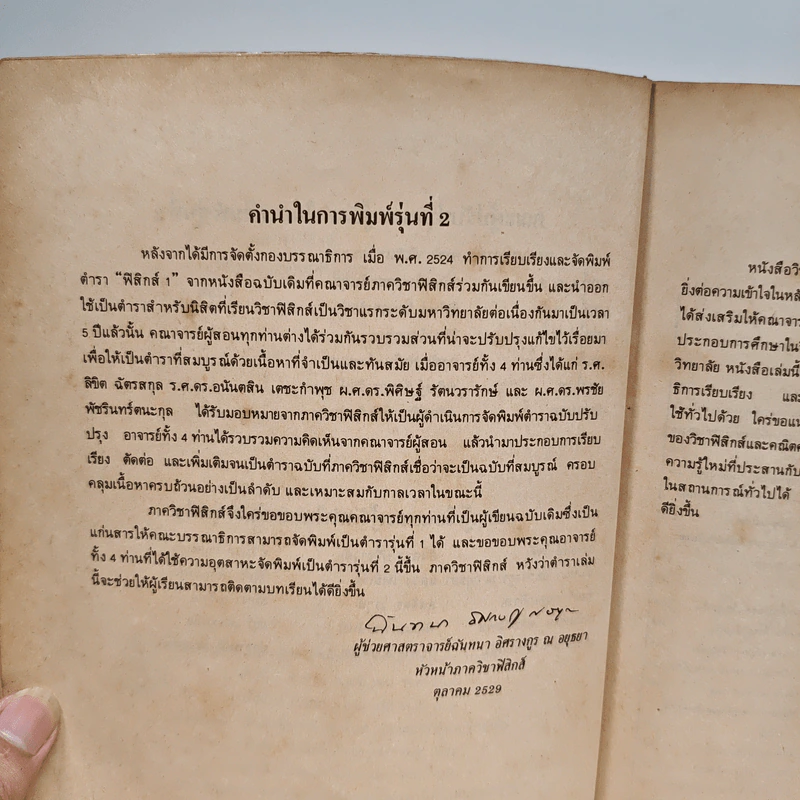 คำนำในการพิมพ์รุ่นที่ 2
หลังจากได้มีการจัดตั้งกองบรรณาธิการ เมื่อ พ.ศ. 2524 ทำการเรียบเรียงและจัดพิมพ์
ตำรา “ฟิสิกส์ 1” จากหนังสือฉบับเดิมที่คณาจารย์ภาควิชาฟิสิกส์ร่วมกันเขียนขึ้น และนำออก
ใช้เป็นตำราสำหรับนิสิตที่เรียนวิชาฟิสิกส์เป็นวิชาแรกระดับมหาวิทยาลัยต่อเนื่องกันมาเป็นเวลา
5 ปีแล้วนั้น คณาจารย์ผู้สอนทุกท่านต่างได้ร่วมกันรวบรวมส่วนที่น่าจะปรับปรุงแก้ไขไว้เรื่อยมา
เพื่อให้เป็นตำราที่สมบูรณ์ด้วยเนื้อหาที่จำเป็นและทันสมัย เมื่ออาจารย์ทั้ง 4 ท่านซึ่งได้แก่ ร.ศ.
ลิขิต ฉัตรสกุล ร.ศ.ดร.อนันตสิน เตชะกำพุช ผ.ศ.ดร.พิศิษฐ์ รัตนวรารักษ์ และ ผ.ศ.ดร.พรชัย
พัชรินทร์ตนะกุล ได้รับมอบหมายจากภาควิชาฟิสิกส์ให้เป็นผู้ดำเนินการจัดพิมพ์ตำราฉบับปรับ
ปรุง อาจารย์ทั้ง 4 ท่านได้รวบรวมความคิดเห็นจากคณาจารย์ผู้สอน แล้วนำมาประกอบการเรียบ
เรียง ตัดต่อ และเพิ่มเติมจนเป็นตำราฉบับที่ภาควิชาฟิสิกส์เชื่อว่าจะเป็นฉบับที่สมบูรณ์ ครอบ
คลุมเนื้อหาครบถ้วนอย่างเป็นลำดับ และเหมาะสมกับกาลเวลาในขณะนี้
ภาควิชาฟิสิกส์จึงใคร่ขอขอบพระคุณคณาจารย์ทุกท่านที่เป็นผู้เขียนฉบับเดิมซึ่งเป็น
แก่นสารให้คณะบรรณาธิการสามารถจัดพิมพ์เป็นตำรารุ่นที่ 1 ได้ และขอขอบพระคุณอาจารย์
ทั้ง 4 ท่านที่ได้ใช้ความอุตสาหะจัดพิมพ์เป็นตำรารุ่นที่ 2 นี้ขึ้น ภาควิชาฟิสิกส์ หวังว่าตำราเล่ม
นี้จะช่วยให้ผู้เรียนสามารถติดตามบทเรียนได้ดียิ่งขึ้น
ผู้ช่วยศาสตราจารย์ฉันทนา อิศรางกูร ณ อยุธยา
หัวหน้าภาควิชาฟิสิกส์
ตุลาคม 2529
หนังสือวิ
ยิ่งต่อความเข้าใจในหลั
ได้ส่งเสริมให้คณาจาร
ประกอบการศึกษาใน
วิทยาลัย หนังสือเล่มนี้
ธิการเรียบเรียง และ
ใช้ทั่วไปด้วย ใคร่ขอแน
ของวิชาฟิสิกส์และคณิต
ความรู้ใหม่ที่ประสานกับ
ในสถานการณ์ทั่วไปได้
ดียิ่งขึ้น